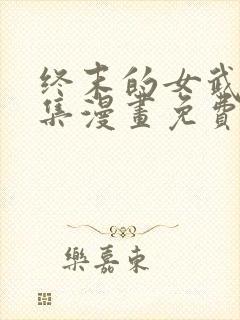 终末的女武
集漫畫免費
樂嘉東